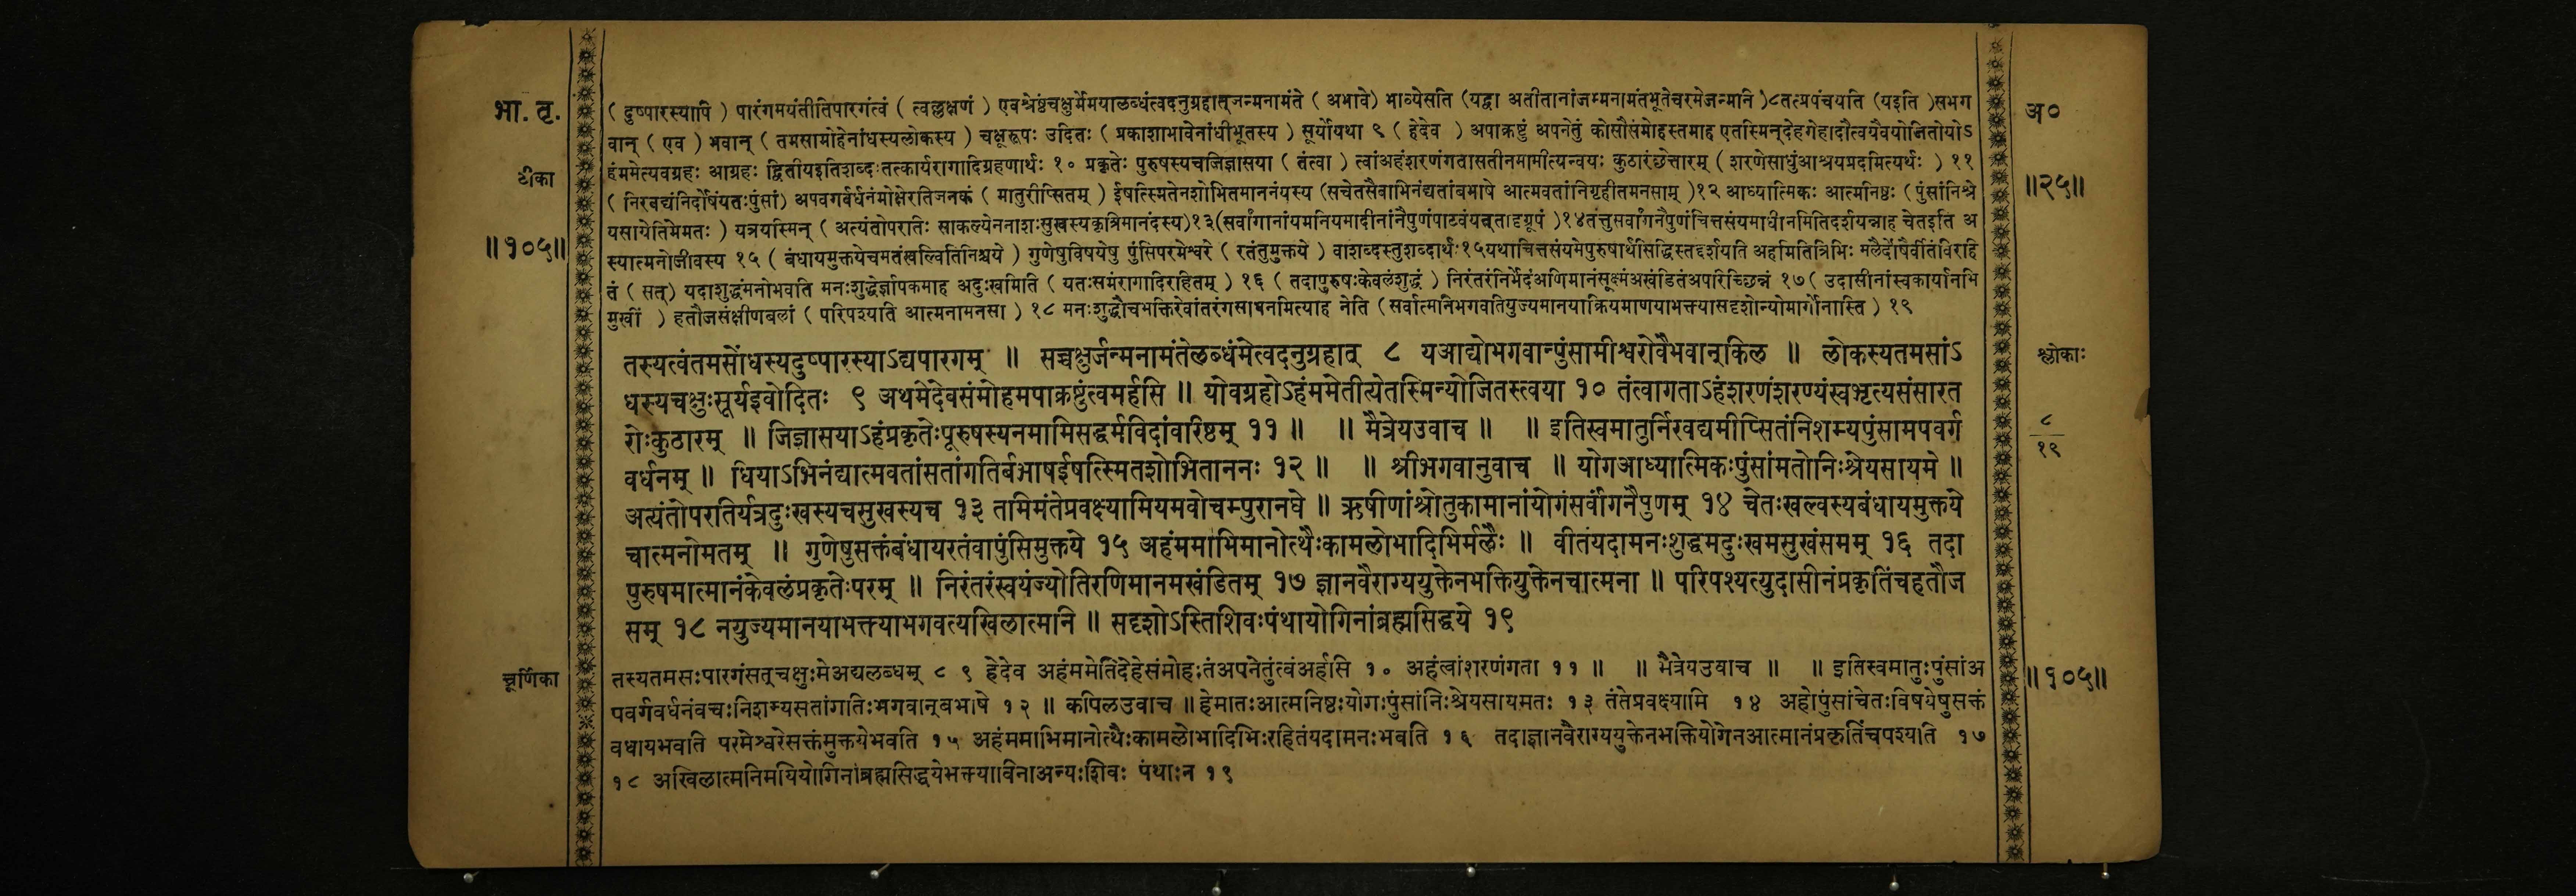 भा. तृ.
( दुष्पारस्यापि ) पारंगमयंतीतिपारगंत्वं ( त्वल्लक्षणं ) एवश्रेष्ठंचक्षुर्मेमयालब्धंत्वदनुग्रहात्जन्मनामंते ( अभावे) भाव्येसति (यद्वा अतीतानांजन्मनामंतभूतेचरमेजन्मनि )८तत्प्रपंचयति (यइति )सभग
अ०
वान् ( एव ) भवान् ( तमसामोहेनांधस्यलोकस्य ) चक्षूरूपः उदितः ( प्रकाशाभावेनांधीभूतस्य ) सूर्योयथा ९ ( हेदेव ) अपाक्रष्टुं अपनेतुं कोसौसंमोहस्तमाह एतस्मिन्देहगेहादौत्वयैवयोजितोयोऽ
टीका
हंममेत्यवग्रहः आग्रहः द्वितीयइतिशब्दःतत्कार्यरागादिग्रहणार्थः १० प्रकृतेः पुरुषस्यचजिज्ञासया ( तंत्वा ) त्वांअहंशरणंगतासतीनमामीत्यन्वयः कुठारंछेत्तारम् ( शरणेसाधुंआश्रयप्रदमित्यर्थः ) ११
॥२५॥
( निरवद्यंनिर्दोषंयतःपुंसां) अपवगर्वर्धनंमोक्षेरतिजनकं ( मातुरीप्सितम् ) ईषत्स्मितेनशोभितमाननंयस्य (सचेतसैवाभिनंद्यतांबभाषे आत्मवतांनिगृहीतमनसाम् )१२ आध्यात्मिकः आत्मनिष्ठः ( पुंसांनिश्रे
यसायेतिमेमतः ) यत्रयस्मिन् ( अत्यंतोपरतिः साकल्येननाशःसुखस्यकृत्रिमानंदस्य)१३(सर्वांगानांयमनियमादीनांनैपुणंपाटवंयत्रतादृग्रूपं )१४तंत्तुसर्वांगनैपुणंचित्तसंयमाधीनमितिदर्शयन्नाह चेतइति अ
॥१०५॥
स्यात्मनोजीवस्य १५ ( बंधायमुक्तयेचमतंखल्वितिनिश्चये ) गुणेषुविषयेषु पुंसिपरमेश्वरे ( रतंतुमुक्तये ) वाशब्दस्तुशब्दार्थः१५यथाचित्तसंयमेपुरुषार्थसिद्धिस्तद्दर्शयति अहमितित्रिभिः मलैर्दोषैर्वीतंविरहि
तं ( सत्) यदाशुद्धंमनोभवति मनःशुद्धेर्ज्ञापकमाह अदुःखमिति ( यतःसमंरागादिरहितम् ) १६ ( तदापुरुषःकेवलंशुद्धं ) निरंतरंनिर्भेदंअणिमानंसूक्ष्मंअखंडितंअपरिच्छिन्नं १७( उदासीनांस्वकार्यानभि
मुखीं ) हतौजसंक्षीणबलां ( परिपश्यति आत्मनामनसा ) १८ मनःशुद्धौचभक्तिरेवांतरंगसाधनमित्याह नेति ( सर्वात्मनिभगवतियुज्यमानयाक्रियमाणयाभक्त्यासदृशोन्योमार्गोनास्ति ) १९
तस्यत्वंतमसोंधस्यदुष्पारस्याऽद्यपारगम् ॥ सच्चक्षुर्जन्मनामंतेलब्धंमेत्वदनुग्रहात् ८ यआद्योभगवान्पुंसामीश्वरोवैभवान्किल ॥ लोकस्यतमसांऽ
श्लोकाः
धस्यचक्षुःसूर्यइवोदितः ९ अथमेदेवसंमोहमपाक्रष्टुंत्वमर्हसि ॥ योवग्रहोऽहंममेतीत्येतस्मिन्योजितस्त्वया १० तंत्वागताऽहंशरणंशरण्यंस्वभृत्यसंसारत
८
रोःकुठारम् ॥ जिज्ञासयाऽहंप्रकृतेःपूरुषस्यनमामिसद्धर्मविदांवरिष्ठम् ११ ॥ ॥ मैत्रेयउवाच ॥ ॥ इतिस्वमातुर्निरवद्यमीप्सितंनिशम्यपुंसामपवर्ग
१९
वर्धनम् ॥ धियाऽभिनंद्यात्मवतांसतांगतिर्बभाषईषत्स्मितशोभिताननः १२ ॥ ॥ श्रीभगवानुवाच ॥ योगआध्यात्मिकःपुंसांमतोनिःश्रेयसायमे ॥
अत्यंतोपरतिर्यत्रदुःखस्यचसुखस्यच १३ तमिमंतेप्रवक्ष्यामियमवोचम्पुरानघे ॥ ऋषीणांश्रोतुकामानांयोगंसर्वांगनैपुणम् १४ चेतःखल्वस्यबंधायमुक्तये
चात्मनोमतम् ॥ गुणेषुसक्तंबंधायरतंवापुंसिमुक्तये १५ अहंममाभिमानोत्थैःकामलोभादिभिर्मलैः ॥ वीतंयदामनःशुद्धमदुःखमसुखंसमम् १६ तदा
पुरुषमात्मानंकेवलंप्रकृतेःपरम् ॥ निरंतरंस्वयंज्योतिरणिमानमखंडितम् १७ ज्ञानवैराग्ययुक्तेनभक्तियुक्तेनचात्मना ॥ परिपश्यत्युदासीनंप्रकृतिंचहतौज
सम् १८ नयुज्यमानयाभक्त्याभगवत्यखिलात्मनि ॥ सदृशोऽस्तिशिवःपंथायोगिनांब्रह्मसिद्धये १९
चूर्णिका
तस्यतमसःपारगंसत्चक्षुःमेअद्यलब्धम् ८ ९ हेदेव अहंममेतिदेहेसंमोहःतंअपनेतुंत्वंअर्हसि १० अहंत्वांशरणंगता ११ ॥ ॥ मैत्रेयउवाच ॥ ॥ इतिस्वमातुःपुंसांअ
॥१०५॥
पवर्गवर्धनंवचःनिशम्यसतांगतिःभगवान्बभाषे १२ ॥ कपिलउवाच ॥ हेमातःआत्मनिष्ठःयोगःपुंसांनिःश्रेयसायमतः १३ तंतेप्रवक्ष्यामि १४ अहोपुंसांचेतःविषयेषुसक्तं
बधायभवति परमेश्वरेसक्तंमुक्तयेभवति १५ अहंममाभिमानोत्थैःकामलोभादिभिःरहितंयदामनःभवति १६ तदाज्ञानवैराग्ययुक्तेनभक्तियोगेनआत्मानंप्रकृतिंचपश्यति १७
१८ अखिलात्मनिमयियोगिनांब्रह्मसिद्धयेभक्त्याविनाअन्यःशिवः पंथाःन १९